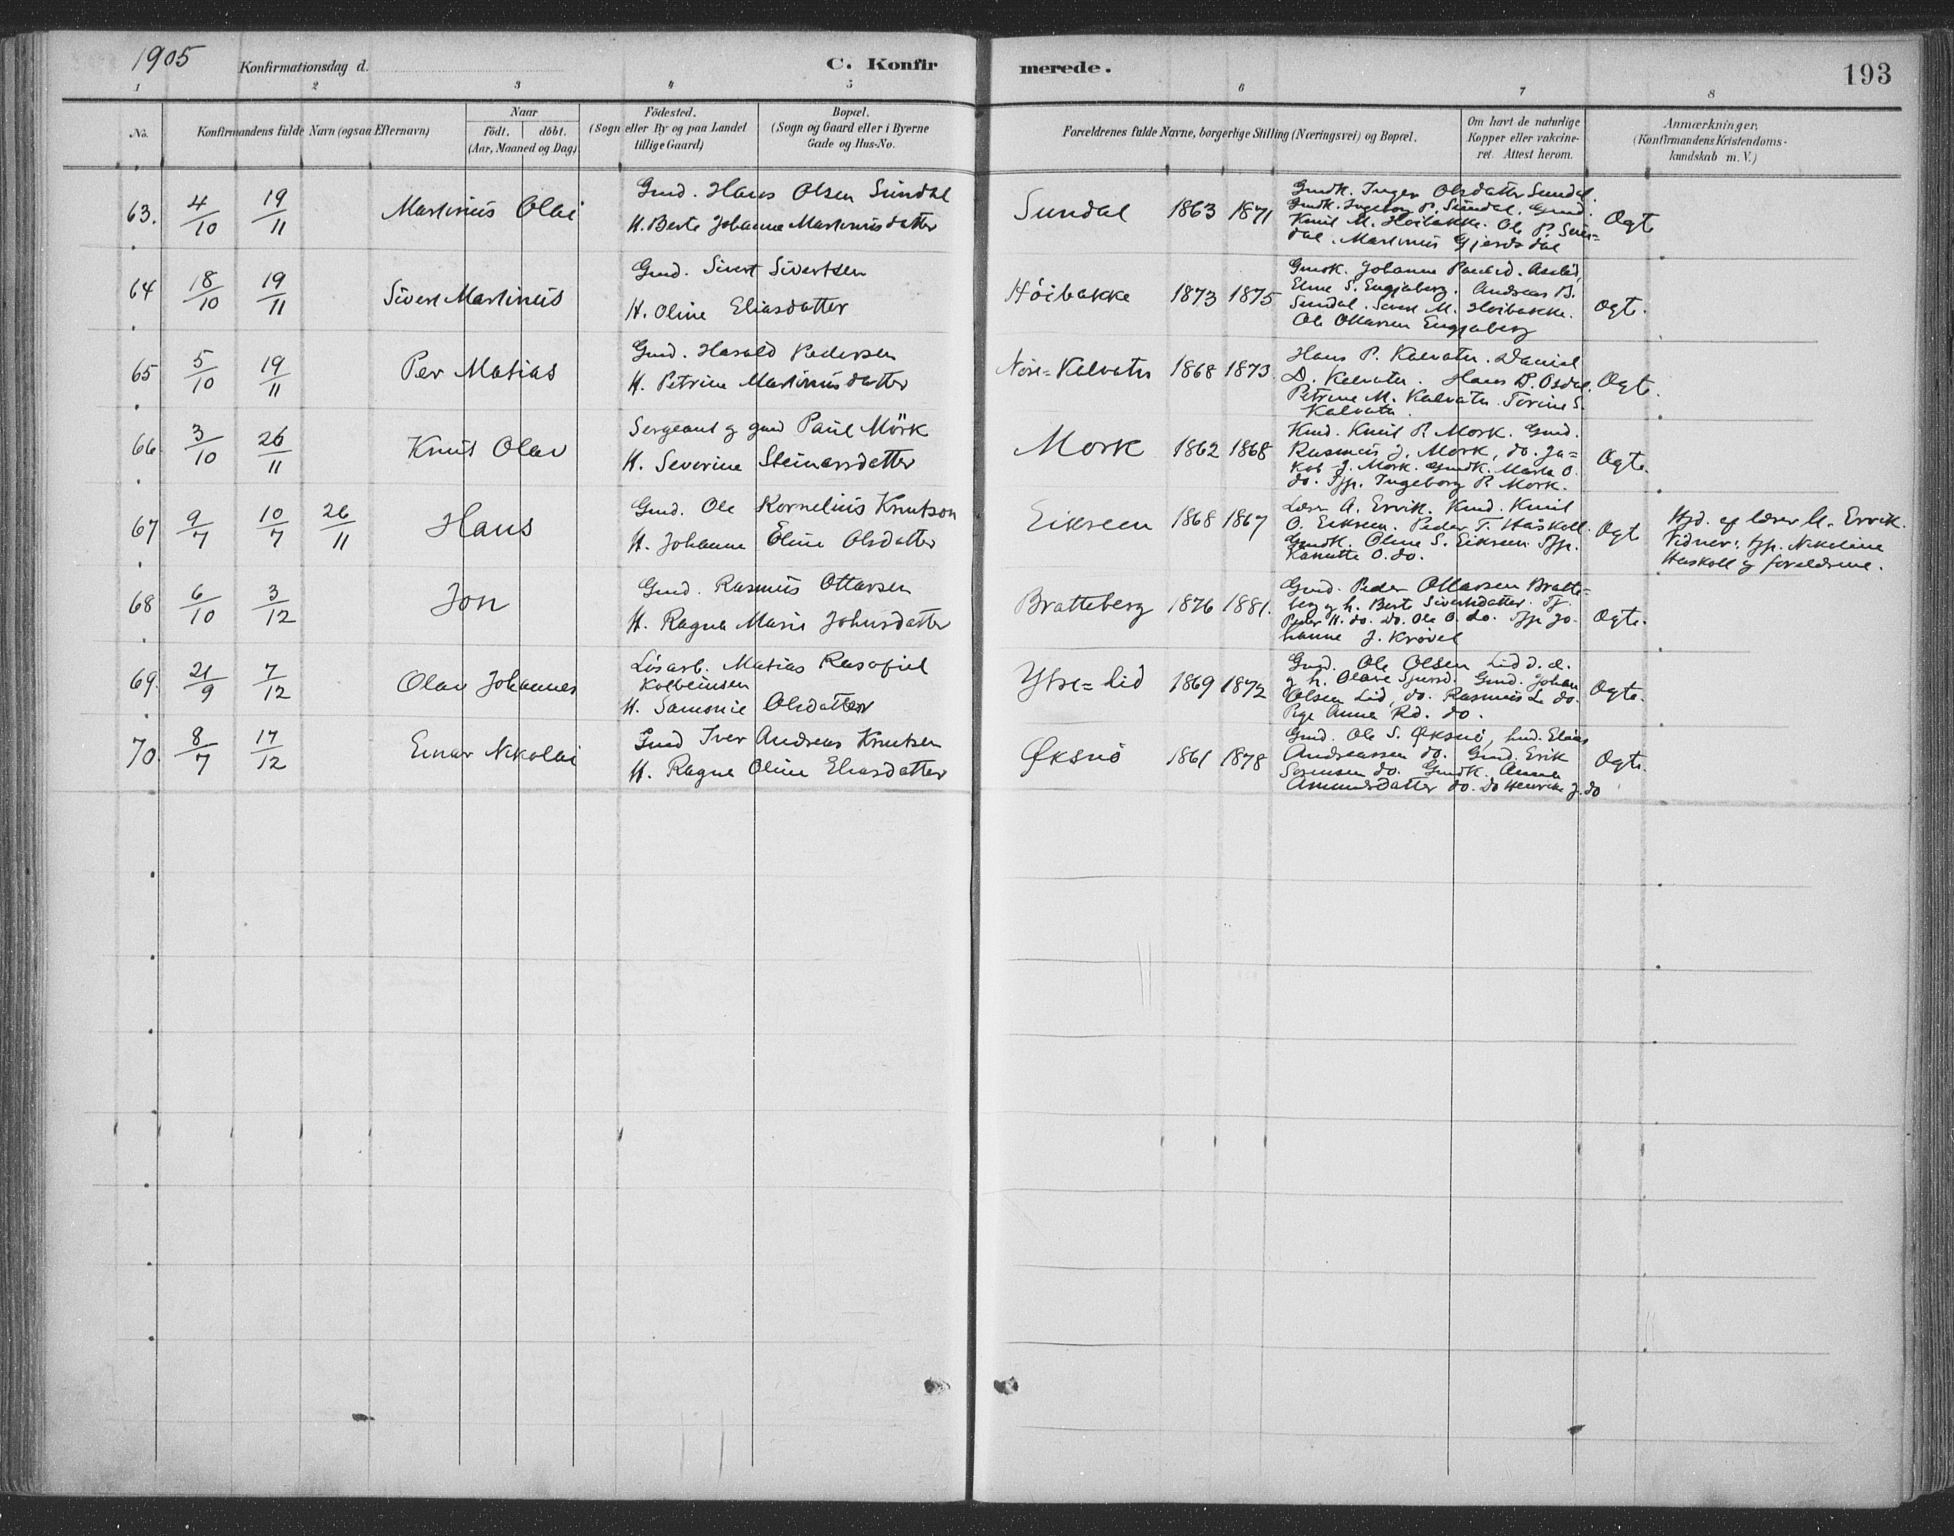 1905
Konfirmationsdag d.
C. Konfir
merede.
193
1 2 3 4 5 6 7 8
No.
Konfirmandens fulde Navn (ogsaa Efternavn)
Naar
födt. döbt.
(Aar, Maaned og Dag)
Födested.
(Sogn eller By og paa Landet
tillige Gaard)
Bopæl.
(Sogn og Gaard eller i Byerne
Gade og Hus-No.
Forældrenes fulde Navne, borgerlige Stilling (Næringsvei) og Bopæl.
Om havt de naturlige
Kopper eller vakcine-
ret. Attest herom.
Anmærkninger,
(Konfirmandens Kristendoms-
kundskab m. V.)
63. 4/10 19/11 Martinus Olai
Gmd. Hans Olsen Sundal
H. Berte Johanne Martinusdatter
Sundal 1863 1871
Gmdk. Inger Olsdatter Sundal.
Gmdk. Ingeborg P. Sundal. Gmd.
Knut M. Hoibakke. Ole P. Sun=
dal. Martinus Gjerdsdal
Ogte
64 18/10 19/11 Sivert Martinus
Gmd. Sivert Sivertsen
H. Oline Eliasdatter
Höibakke 1873 1875
Gmdk. Johanne
Eline S. Engjaberg. Andreas B.
Sundal. M. Hoibakke.
Ole Ottarsen Engjaberg
Ogte.
65 5/10 19/11 Per Matias
Gmd. Harald Pedersen
H. Petrine Martinusdatter
Nore=Kalvatn 1868 1873
Hans P. Kalvatn. Daniel
D. Kalvatn. Hans P. Osdal.
Petrine M. Kalvatn. Torine S.
Kalvatn.
Ogte.
66 3/10 26/11 Knut Olav
Sergeant og gmd Paul Mörk
H. Severine Steinarsdatter
Mork 1862 1868
Kmd. Knut P. Mork. Gmd.
Rasmus J. Mork, do. Ja=
kob J. Mork. Gmdk. Marta O.
do. Pp. Ingeborg P. Mork.
Ogte.
67 9/7 10/7 26/11 Hans
Gmd. Ole Kornelius Knutson
H. Johanne Eline Olsdatter
Eiksem 1868 1867
Lærer A. Ervik. Kmd. Knut
O. Eiksem. Peder T. Haskoll.
Gmdk. Oline S. Eiksem. Pp.
Kanutte O. do.
Ogt
Hjd. af lærer A. Ervik.
Vidner: Pp. Nikoline
Haskoll og forældrene.
68 6/10 3/12 Jon
Gmd. Rasmus Ottarsen
H. Ragna Marie Johnsdatter
Bratteberg 1876 1881.
Gmd. Peder Ottarsen Bratte=
berg og h. Berte Sivertsdatter.
Peder H. do. Do. Ole O. do. Pp. Jo=
hanne J. Krövel
Ogte.
69. 21/9 7/12 Olav Johannes
Lösarb. Matias Rasafiel
Kolbeinsen
H. Samonie Olsdatter
Ytre=Lid 1869 1872
Gmd. Ole Olsen Lid d. e.
og h. Olave Sjursd. Gmd. Johan
Olsen Lid, do. Rasmus L. do.
Pige Anne Rd. do.
Ogte.
70. 8/7 17/12 Einar Nikolai
Gmd Iver Andreas Knutsen
H. Ragna Oline Eliasdatter
Øksnö 1861 1878
Gmd. Ole S. Øksnö, Elias
Andreassen do. Gmd. Erik
Sörensen do. Gmdk. Anna
Ammundsdatter do. do Henrikke J. do
Ogte.